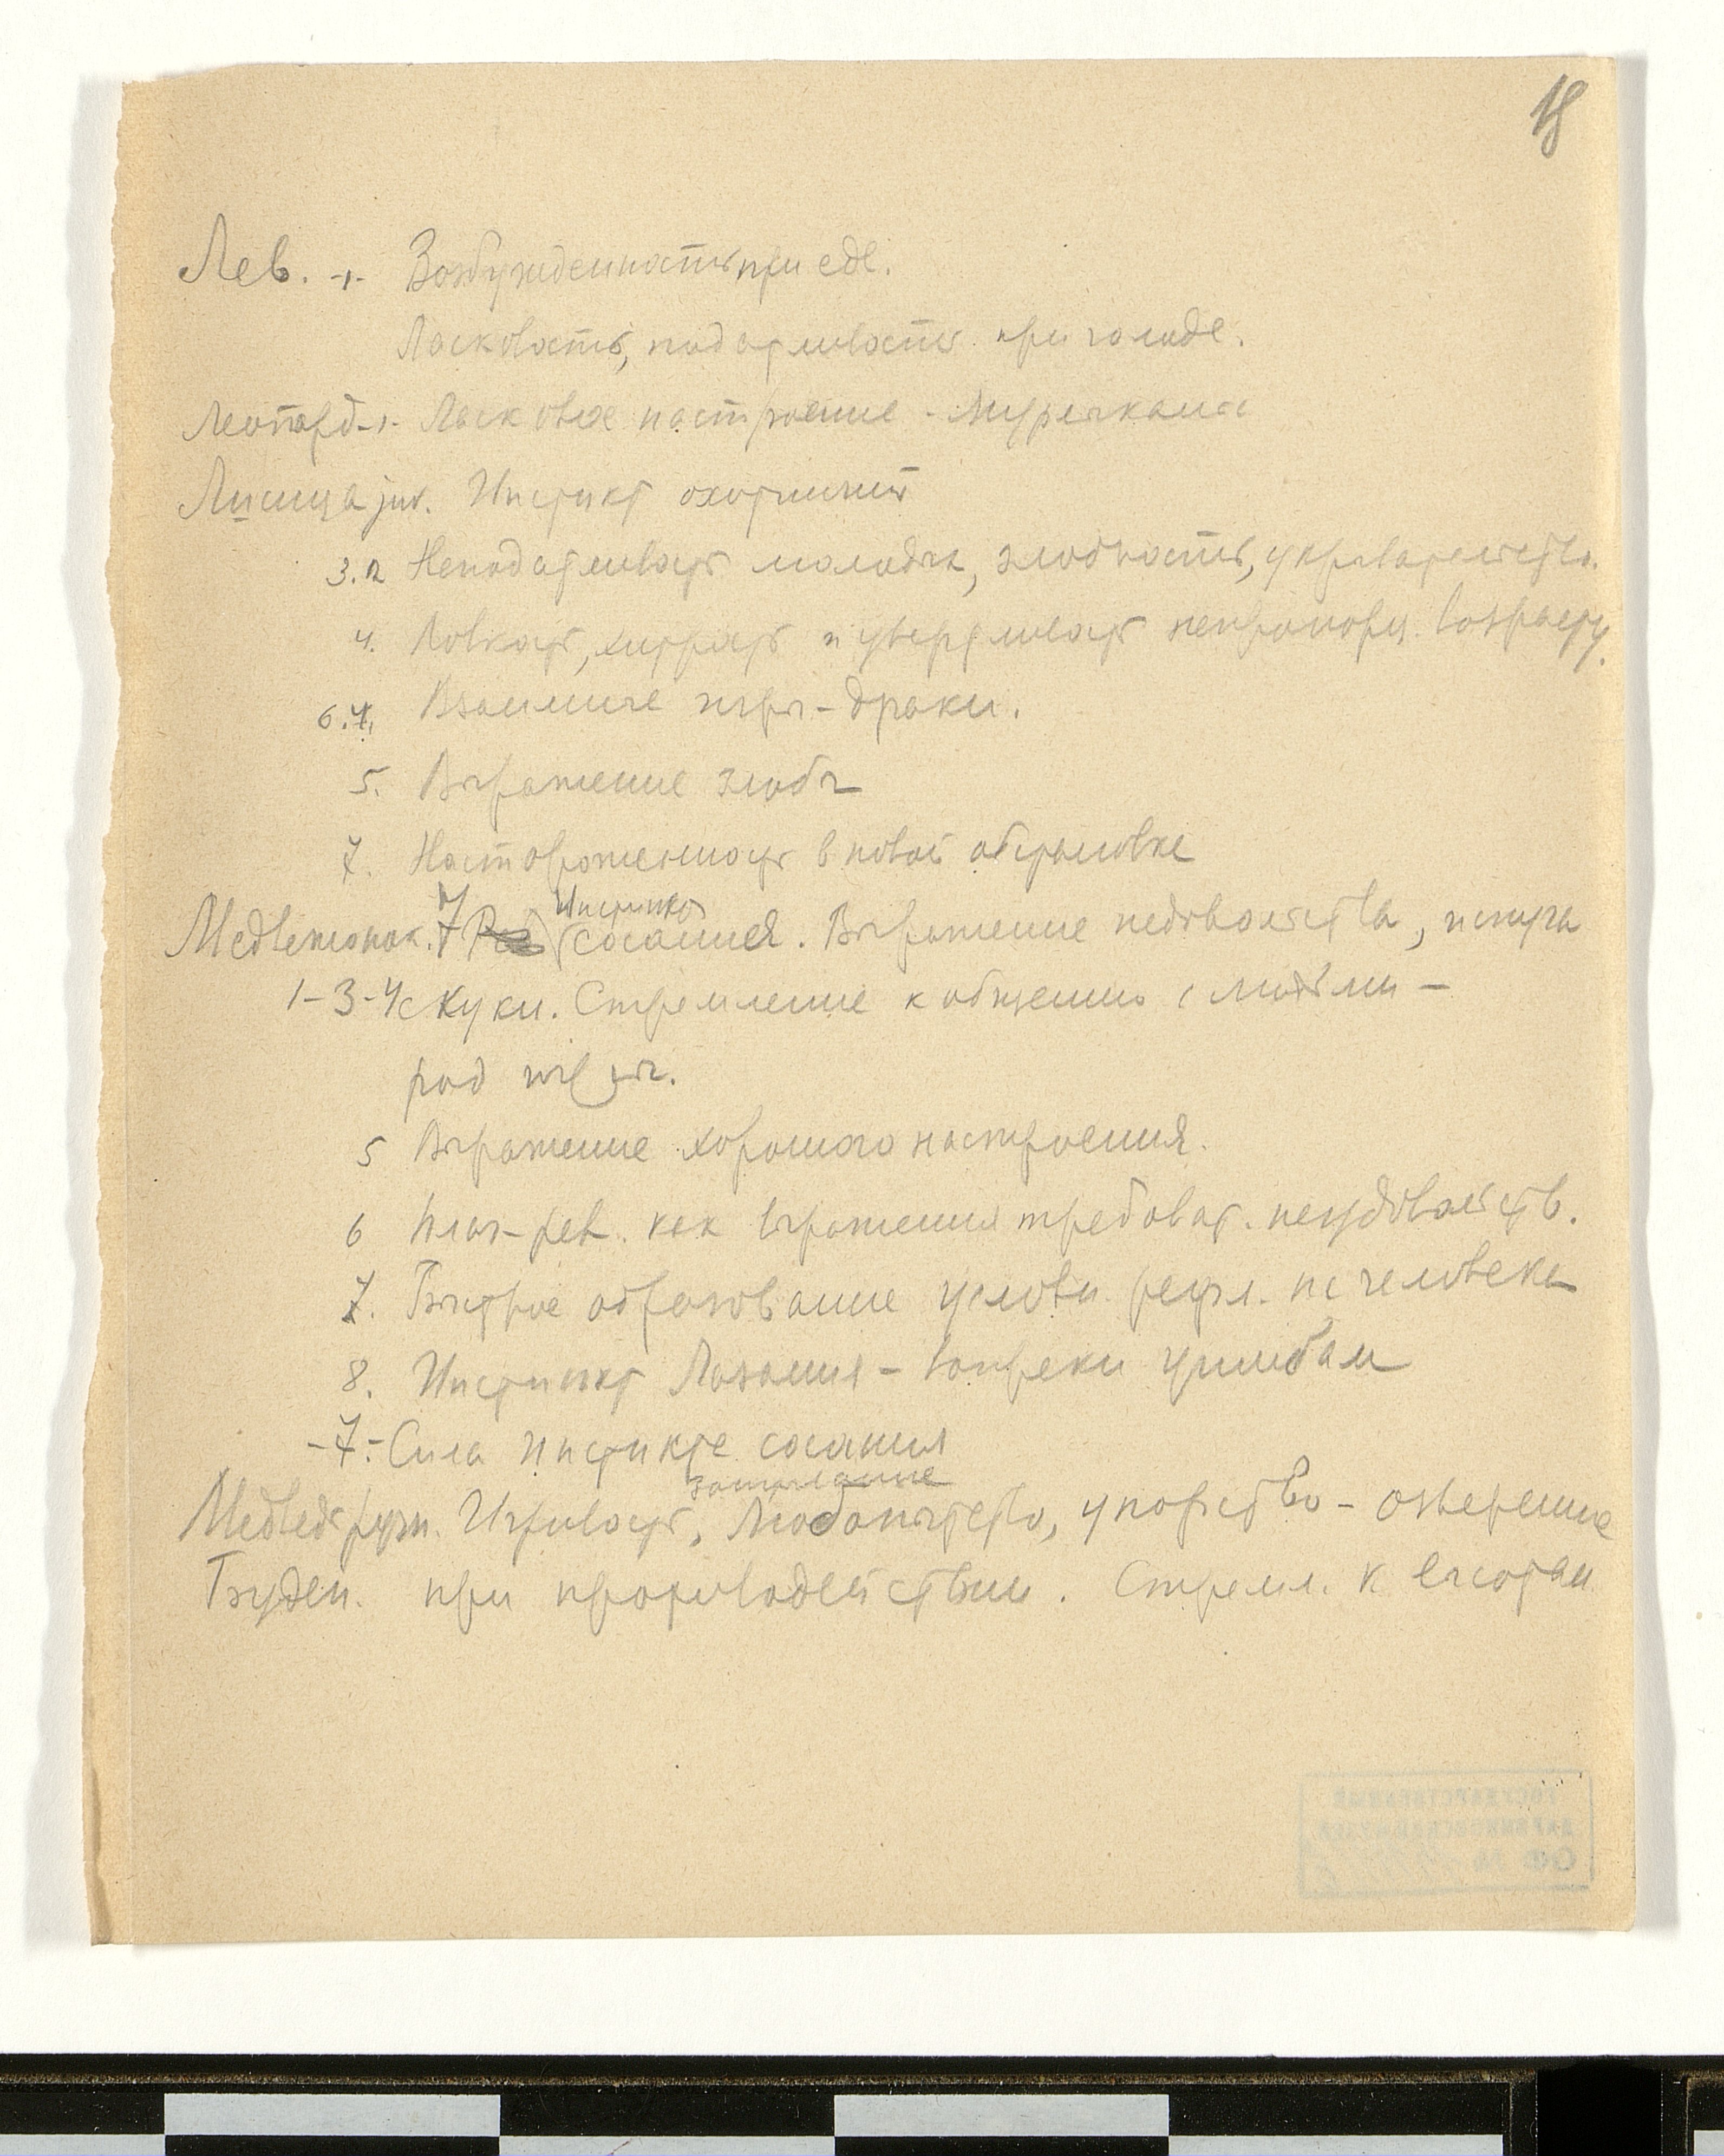 18
Лев. -1- Возбужденность при еде.
Ласковость, податливость при голоде.
Леопард -1- Ласковое настроение - Мурлыканье
Лисица juv. Инстинкт охотничий
3.2 Неподатливость молодых, злобность, укрывательство.
4. Ловкость, хитрость и увертливость непропорц. возрасту.
6.4. Взаимные игры-драки.
5. Выражение злобы
7. Настороженность в новой обстановке
Инстинкт
Медвежонок. 7 сосания. Выражение недовольства, испуга
1-3-4 скуки. Стремление к общению с людьми -
род
5 Выражение хорошего настроения.
6 Плач-рев. как выражения требоват. неудовольств.
7. Быстрое образование условн. рефл. на человека
8. Инстинкт Лазания - вопреки ушибам
-7- Сила инстинкта сосания
Медведь Игривость, Любопытство, упорство - озверение
при противодействии. Стремл. к высотам
ГОСУДАРСТВЕННЫЙ
ДАРВИНОВСКИЙ МУЗЕЙ
ОФ №